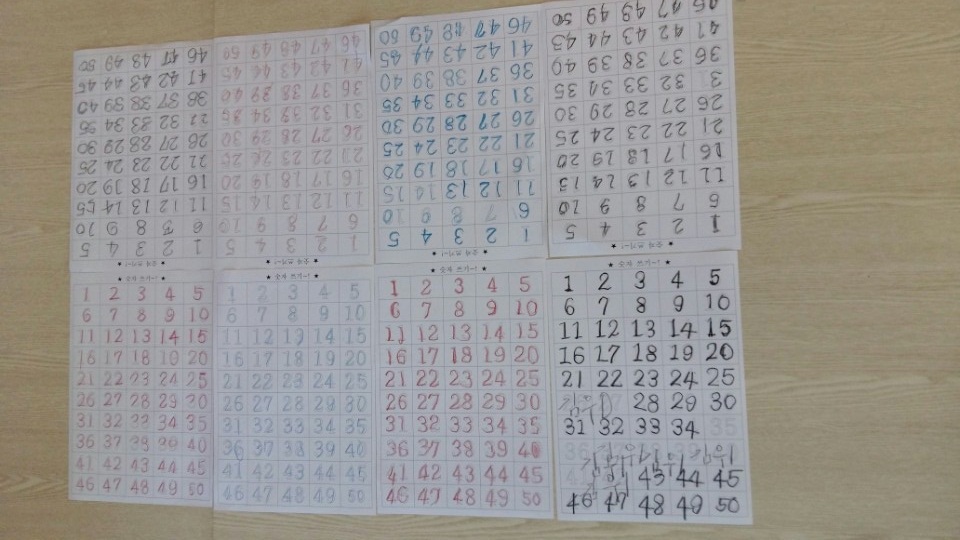 ★ 숫자 쓰기~! ★
1 2 3 4 5
6 8 9 10
11 12 13 14 15
16 17 18 19 20
21 22 23 24 25
26 27 28 29 30
31 32 33 34 35
36 37 38 39 40
41 42 43 44 45
46 47 48 49 50
★ 숫자 쓰기~! ★
1 2 3 4 5
6 7 8 9 10
11 12 13 14 15
16 17 18 19 20
21 22 23 24 25
26 27 28 29 30
31 32 33 34 35
36 37 38 39 40
41 42 43 44 45
46 47 48 49 50
★ 숫자 쓰기~! ★
1 2 3 4 5
6 7 8 9 10
11 12 13 14 15
16 17 18 19 20
21 22 23 24 25
26 27 28 29 30
31 32 33 34 35
36 37 38 39 40
41 42 43 44 45
46 47 48 49 50
★ 숫자 쓰기~! ★
1 2 3 4 5
6 7 8 9 10
11 12 13 14 15
16 17 18 19 20
21 22 23 24 25
26 27 28 29 30
31 32 33 34 35
36 37 38 39 40
41 42 43 44 45
46 47 48 49 50
★ 숫자 쓰기~! ★
1 2 3 4 5
6 7 8 9 10
11 12 13 14 15
16 17 18 19 20
21 22 23 24 25
26 27 28 29 30
31 32 33 34 35
36 37 38 39 40
41 42 43 44 45
46 47 48 49 50
★ 숫자 쓰기~! ★
1 2 3 4 5
6 7 8 9 10
11 12 13 14 15
16 17 18 19 20
21 22 23 24 25
26 27 28 29 30
31 32 33 34 35
36 37 38 39 40
41 42 43 44 45
46 47 48 49 50
★ 숫자 쓰기~! ★
1 2 3 4 5
6 7 8 9 10
11 12 13 14 15
16 17 18 19 20
21 22 23 24 25
26 27 28 29 30
31 32 33 34 35
36 37 38 39 40
41 42 43 44 45
46 47 48 49 50
★ 숫자 쓰기~! ★
1 2 3 4 5
6 7 8 9 10
11 12 13 14 15
16 17 18 19 20
21 22 23 24 25
28 29 30
31 32 33 34 35
43 44 45
46 47 48 49 50